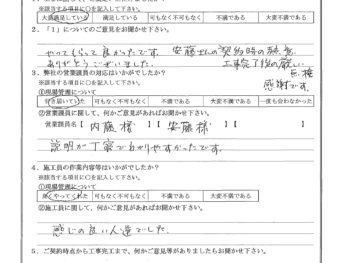 ※該当する項目に○を記入して下さい。
大変満足している 満足している 可もなく不可もなく 不満である 大変不満である
2．「1」についてのご意見をお聞かせ下さい。
やってもらって良かったです。安藤さんの契約時の熱意
ありがとうございました。工事完了後の厳しい
点検
感謝です。
3．弊社の営業課員の対応はいかがでしたか？
※該当する項目に○を記入して下さい。
①現場管理について
行き届いていた 可もなく不可もなく 不満である 大変不満である 一度も会わなかった
②営業課員に関して、何かご意見があればお聞かせ下さい。
営業課員名【 内藤様 】【 安藤様 】
説明が丁寧でわかりやすかったです。
4．施工員の作業内容等はいかがでしたか？
※該当する項目に○を記入して下さい。
①現場管理について
良くやってくれた 可もなく不可もなく 不満である 大変不満である
②施工員に関して、何かご意見があればお聞かせ下さい。
感じの良い人達でした。
5．ご契約時点から工事完了まで、何かご意見等がありましたらお聞かせ下さい。